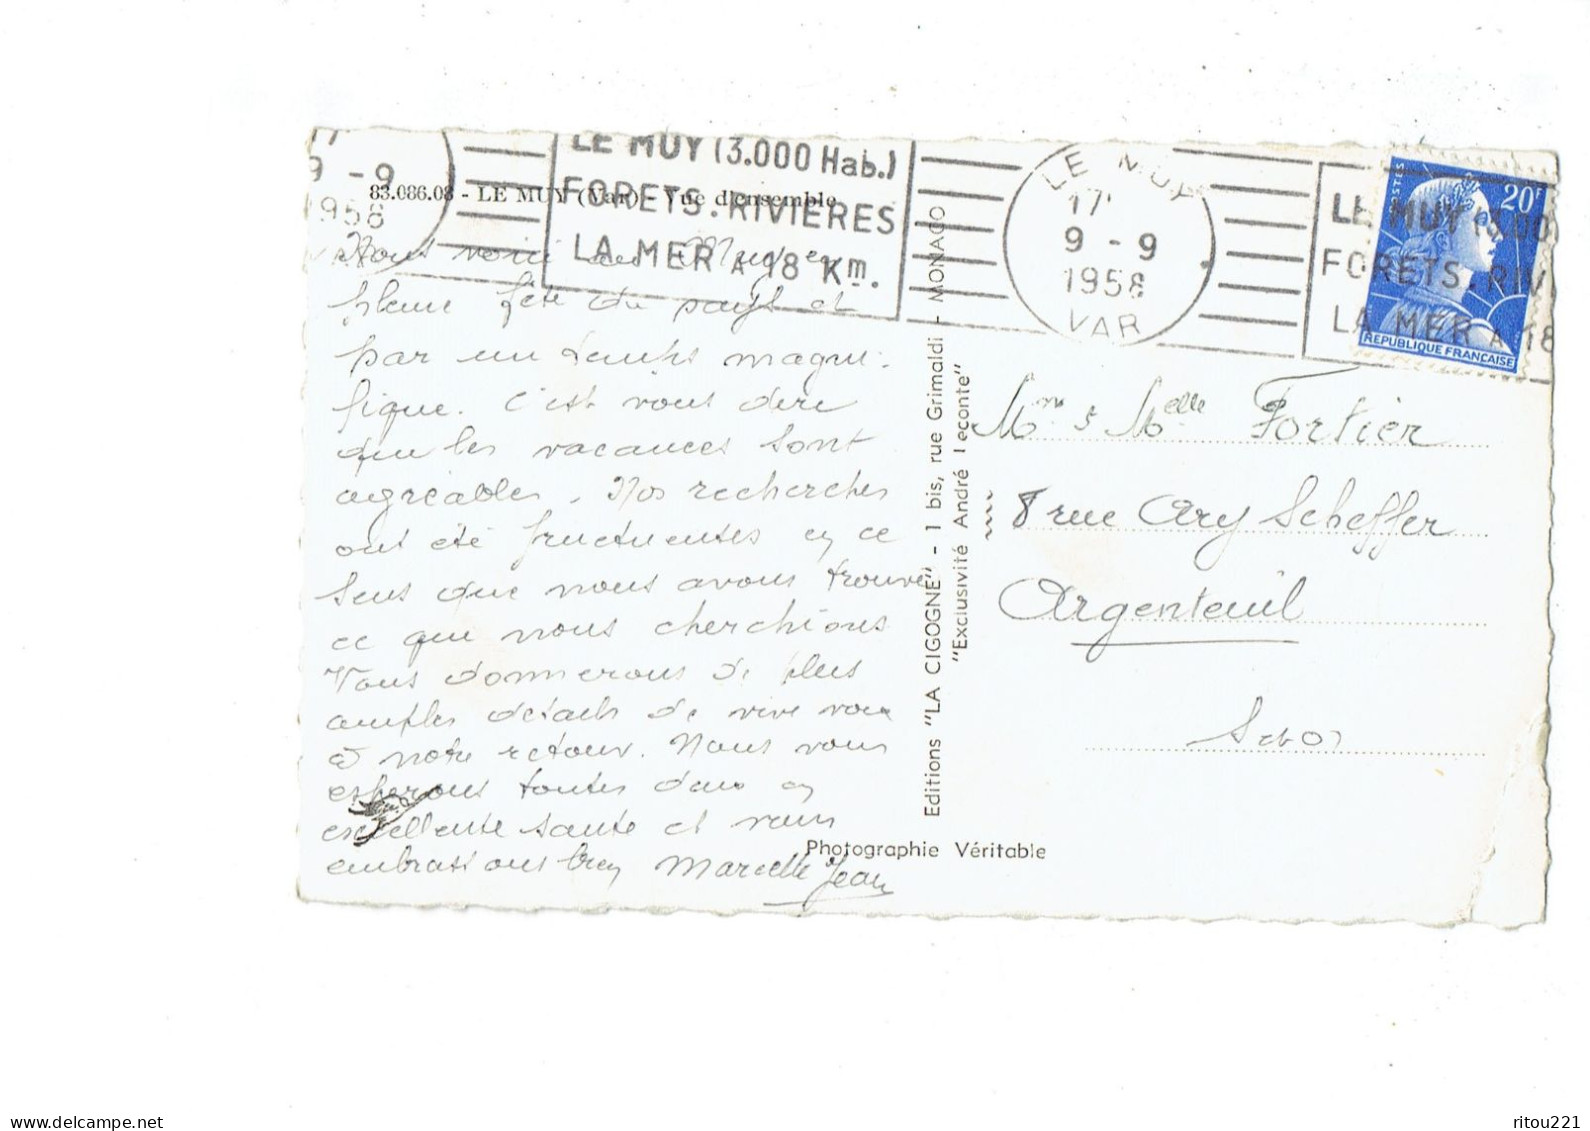 17
9 - 9
1958
LE MUY (3.000 Hab.)
FORETS . RIVIERES
LA MER A 18 Km.
LE MUY
17
9 - 9
1958
VAR
LE MUY (3.00
FORETS . RIV
LA MER A 18
POSTES
20F
REPUBLIQUE FRANÇAISE
83.086.08 - LE MUY (Var) - Vue d'ensemble
Nous voici au Muy en
pleine fête du pays et
par un temps magni-
fique. C'est vous dire
que les vacances sont
agréables. Nos recherches
ont été fructueuses en ce
sens que nous avons trouvé
ce que nous cherchions
Vous donnerons de plus
amples détails de vive voix
à notre retour. Nous vous
espérons toutes deux en
excellente santé et vous
embrassons bien Marcelle Jean
Editions "LA CIGOGNE" - 1 bis, rue Grimaldi - MONACO
"Exclusivité André Leconte"
Photographie Véritable
Mme & Melle Fortier
8 rue Ary Scheffer
Argenteuil
S et O
ritou221